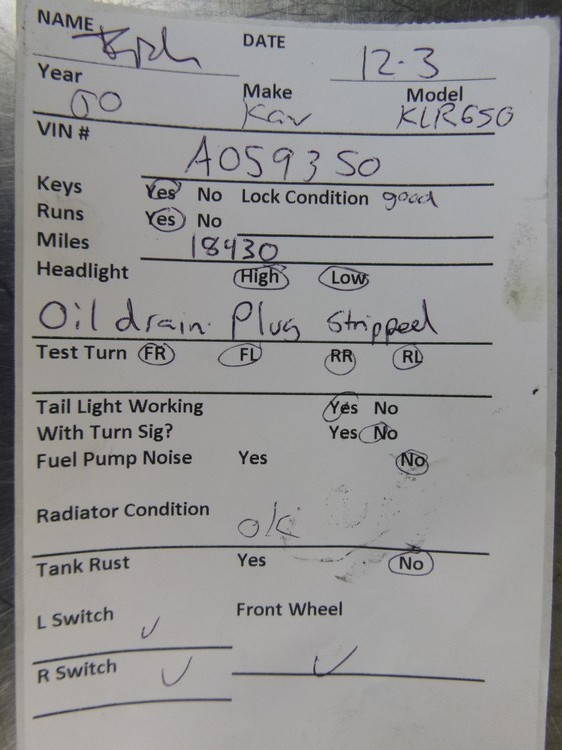 NAME DATE 12-3
Year 00 Make Kaw Model KLR650
VIN # A059350
Keys Yes No Lock Condition good
Runs Yes No
Miles 18430
Headlight High Low
Oil drain Plug Stripped
Test Turn FR FL RR RL
Tail Light Working Yes No
With Turn Sig? Yes No
Fuel Pump Noise Yes No
Radiator Condition ok
Tank Rust Yes No
L Switch ✓ Front Wheel ✓
R Switch ✓